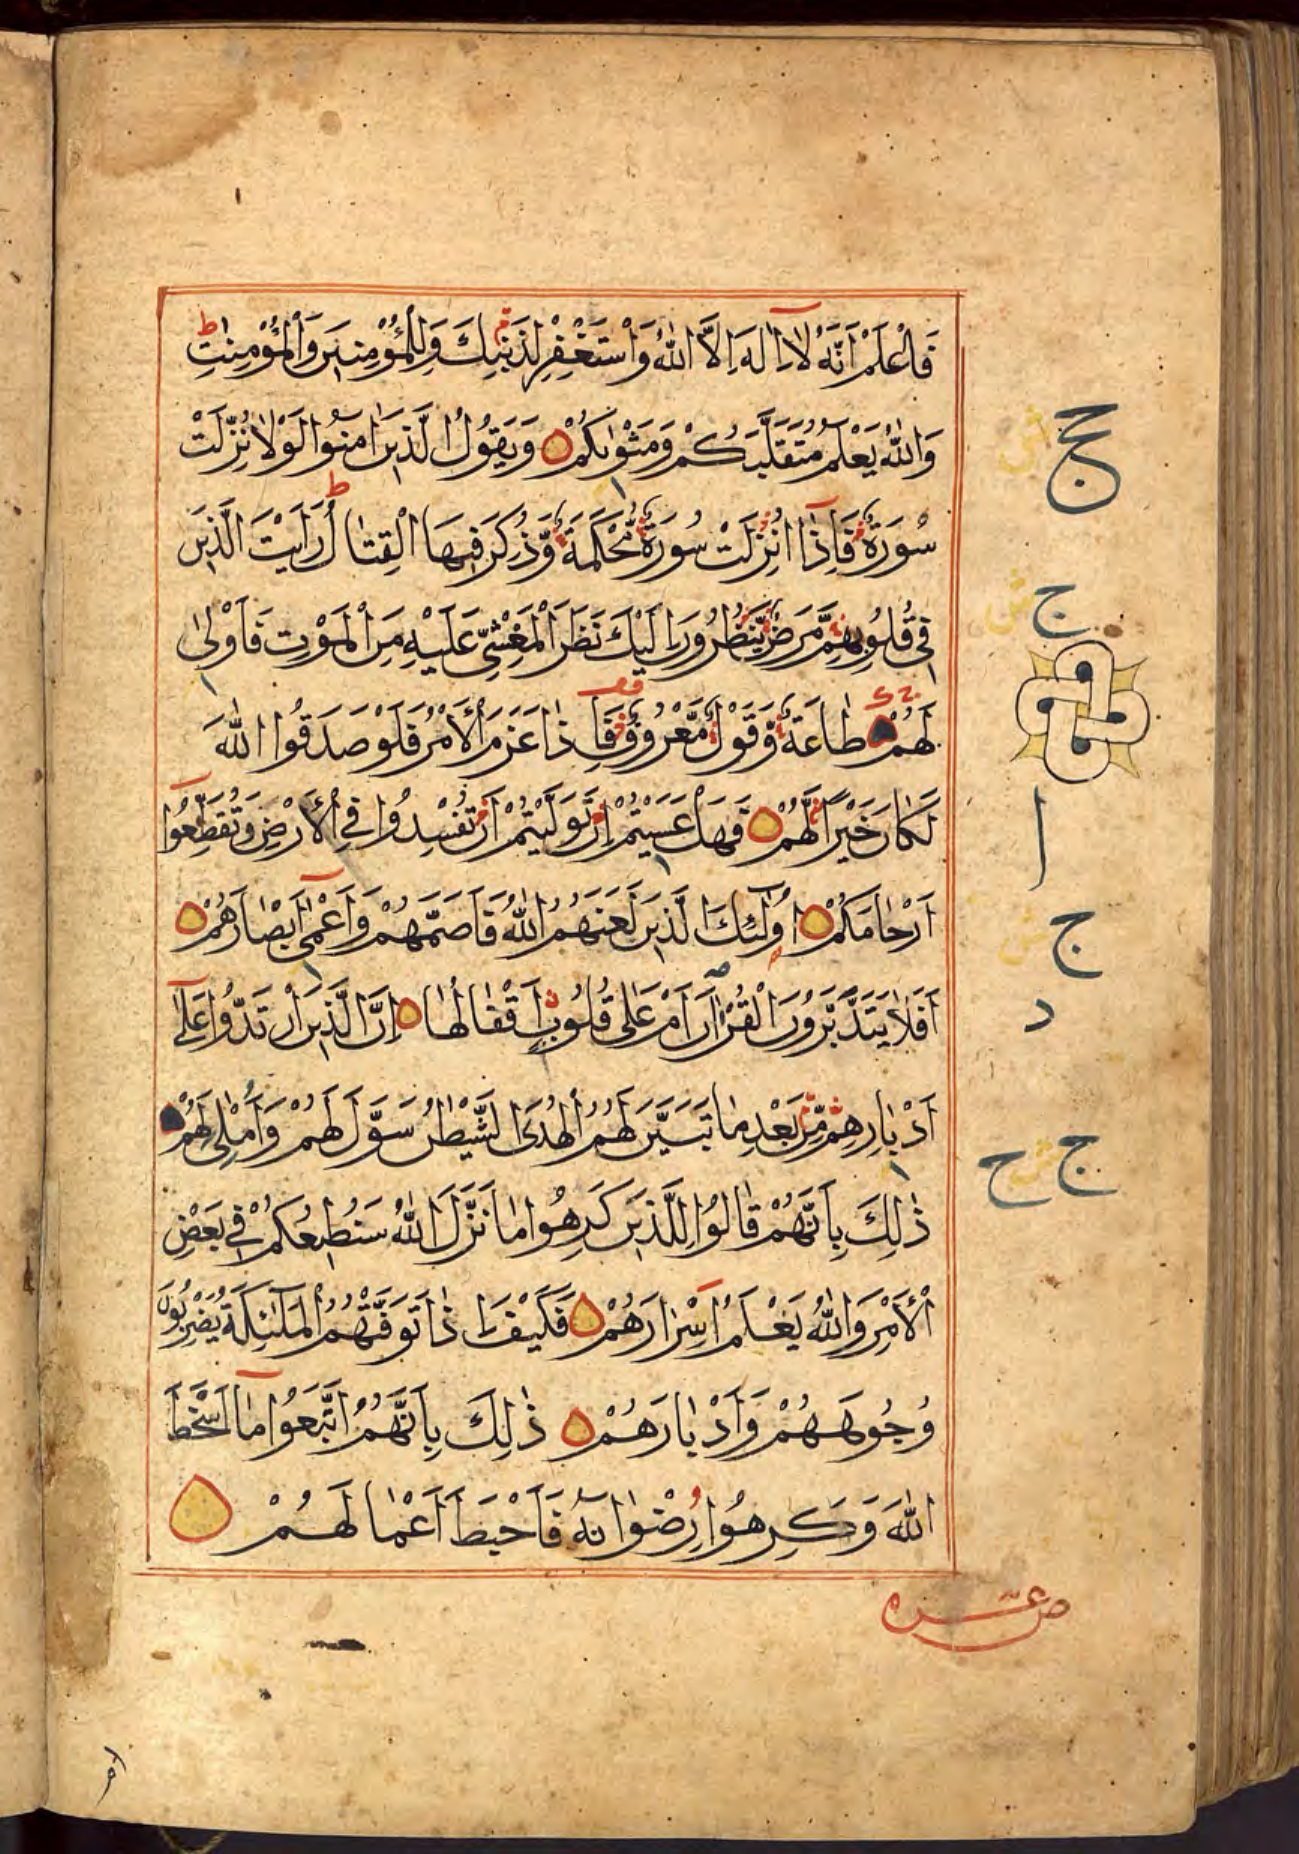 فَاعْلَمْ اَنَّهُ لَآ اِلٰهَ اِلَّا اللّٰهُ وَاسْتَغْفِرْ لِذَنْبِكَ وَلِلْمُؤْمِنِينَ وَالْمُؤْمِنٰتِ ط
وَاللّٰهُ يَعْلَمُ مُتَقَلَّبَكُمْ وَمَثْوٰىكُمْ وَيَقُولُ الَّذِينَ اٰمَنُوا لَوْلَا نُزِّلَتْ
سُورَةٌ فَاِذَآ اُنْزِلَتْ سُورَةٌ مُحْكَمَةٌ وَّذُكِرَ فِيهَا الْقِتَالُ رَاَيْتَ الَّذِينَ
فِى قُلُوبِهِمْ مَّرَضٌ يَّنْظُرُونَ اِلَيْكَ نَظَرَ الْمَغْشِىِّ عَلَيْهِ مِنَ الْمَوْتِ فَاَوْلٰى
لَهُمْ طَاعَةٌ وَّقَوْلٌ مَّعْرُوفٌ فَاِذَا عَزَمَ الْاَمْرُ فَلَوْ صَدَقُوا اللّٰهَ
لَكَانَ خَيْرًا لَّهُمْ فَهَلْ عَسَيْتُمْ اِنْ تَوَلَّيْتُمْ اَنْ تُفْسِدُوا فِى الْاَرْضِ وَتُقَطِّعُوٓا
اَرْحَامَكُمْ اُولٰٓئِكَ الَّذِينَ لَعَنَهُمُ اللّٰهُ فَاَصَمَّهُمْ وَاَعْمٰٓى اَبْصَارَهُمْ
اَفَلَا يَتَدَبَّرُونَ الْقُرْاٰنَ اَمْ عَلٰى قُلُوبٍ اَقْفَالُهَا اِنَّ الَّذِينَ ارْتَدُّوا عَلٰٓى
اَدْبَارِهِمْ مِّنْ بَعْدِ مَا تَبَيَّنَ لَهُمُ الْهُدَى الشَّيْطٰنُ سَوَّلَ لَهُمْ وَاَمْلٰى لَهُمْ
ذٰلِكَ بِاَنَّهُمْ قَالُوا لِلَّذِينَ كَرِهُوا مَا نَزَّلَ اللّٰهُ سَنُطِيعُكُمْ فِى بَعْضِ
الْاَمْرِ وَاللّٰهُ يَعْلَمُ اِسْرَارَهُمْ فَكَيْفَ اِذَا تَوَفَّتْهُمُ الْمَلٰٓئِكَةُ يَضْرِبُونَ
وُجُوهَهُمْ وَاَدْبَارَهُمْ ذٰلِكَ بِاَنَّهُمُ اتَّبَعُوا مَآ اَسْخَطَ
اللّٰهَ وَكَرِهُوا رِضْوَانَهُ فَاَحْبَطَ اَعْمَالَهُمْ
ج
ج
ا
ج
د
ج ح